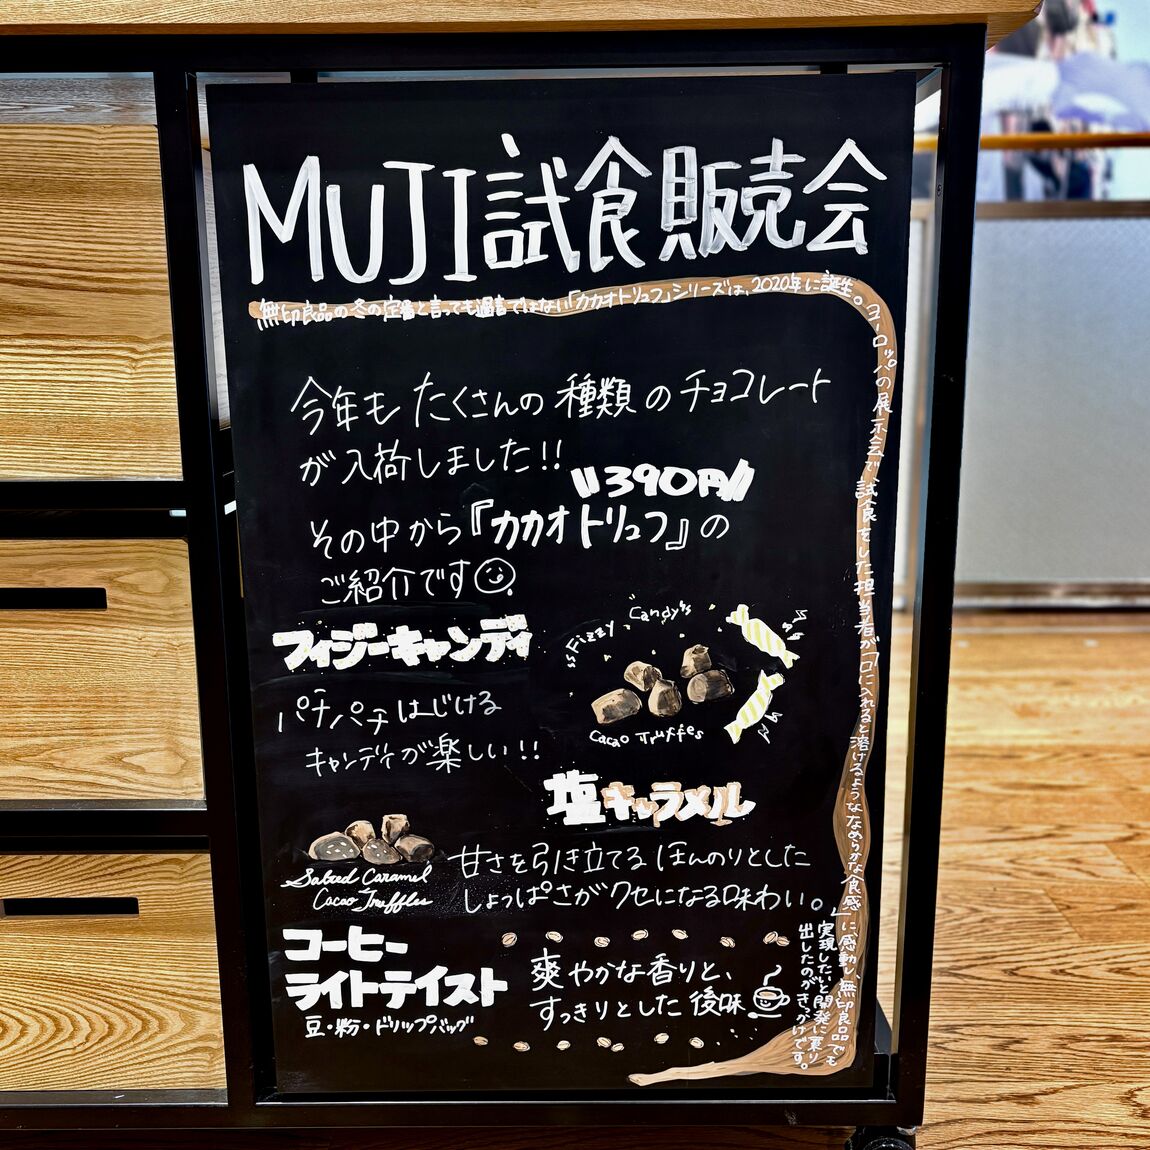 MUJI試食販売会
無印良品の冬の定番と言っても過言ではない「カカオトリュフ」シリーズは、2020年に誕生。ヨーロッパの展示会で、試食をした担当者が「口に入れると溶けるようななめらかな食感」に感動し、無印良品でも
実現したいと開発に乗り
出したのがきっかけです。
今年も たくさんの 種類 の チョコレート
が 入荷しました!!
390円
その中から『カカオトリュフ』の
ご紹介です
フィジーキャンディ
"Fizzy Candy"
Cacao Truffes
パチパチはじける
キャンディが楽しい!!
塩キャラメル
Salted Caramel
Cacao Truffles
甘さを引き立てる ほんのりとした
しょっぱさがクセになる味わい。
コーヒー
ライトテイスト
豆・粉・ドリップバッグ
爽やかな香りと、
すっきりとした 後味